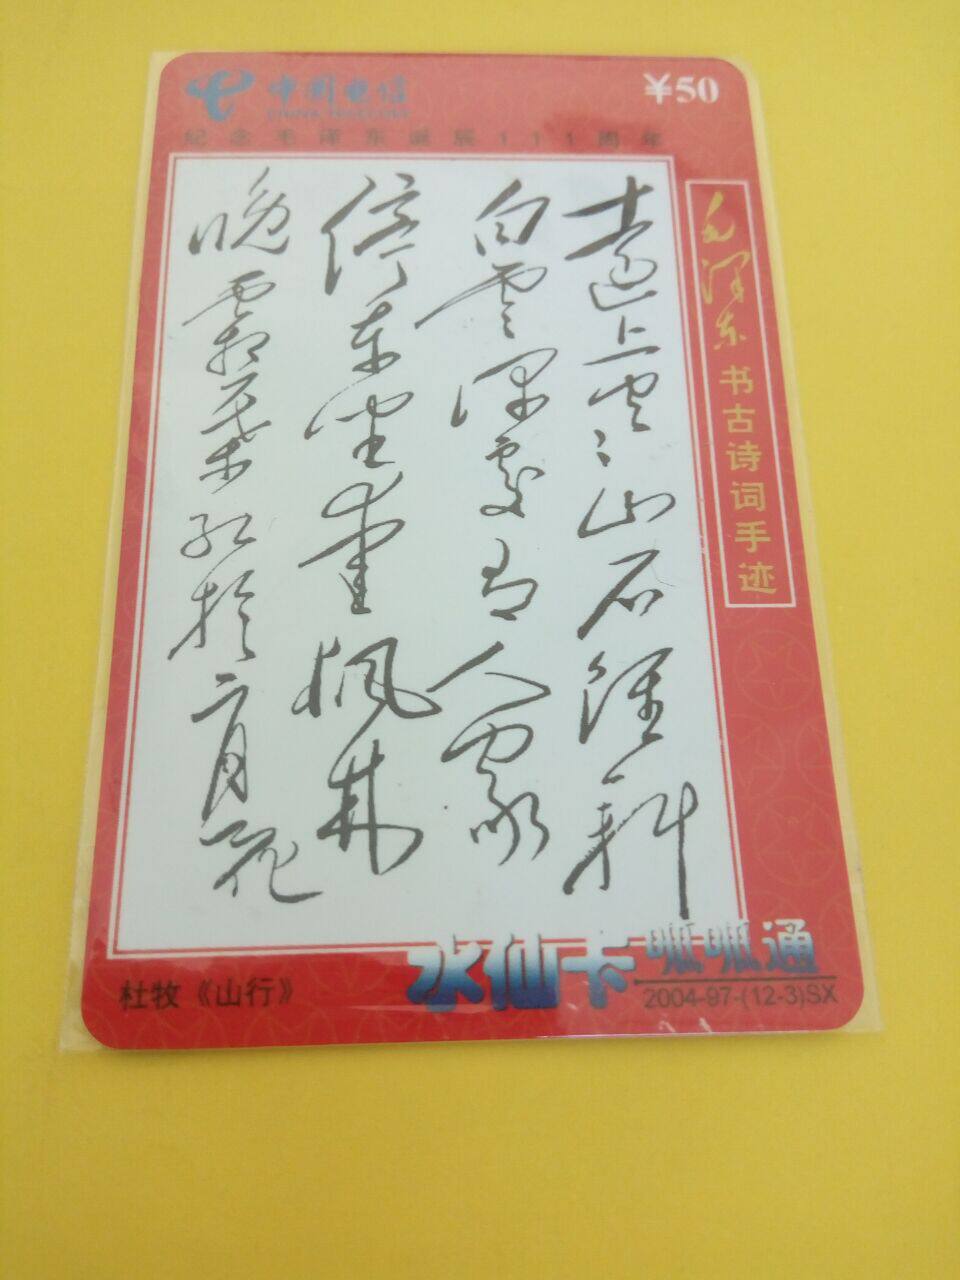 中国电信
CHINA TELECOM
¥50
纪念毛泽东诞辰111周年
毛泽东书古诗词手迹
远上寒山石径斜
白云深处有人家
停车坐爱枫林
晚霜叶红于二月花
杜牧《山行》
水仙卡呱呱通
2004-97-(12-3)SX